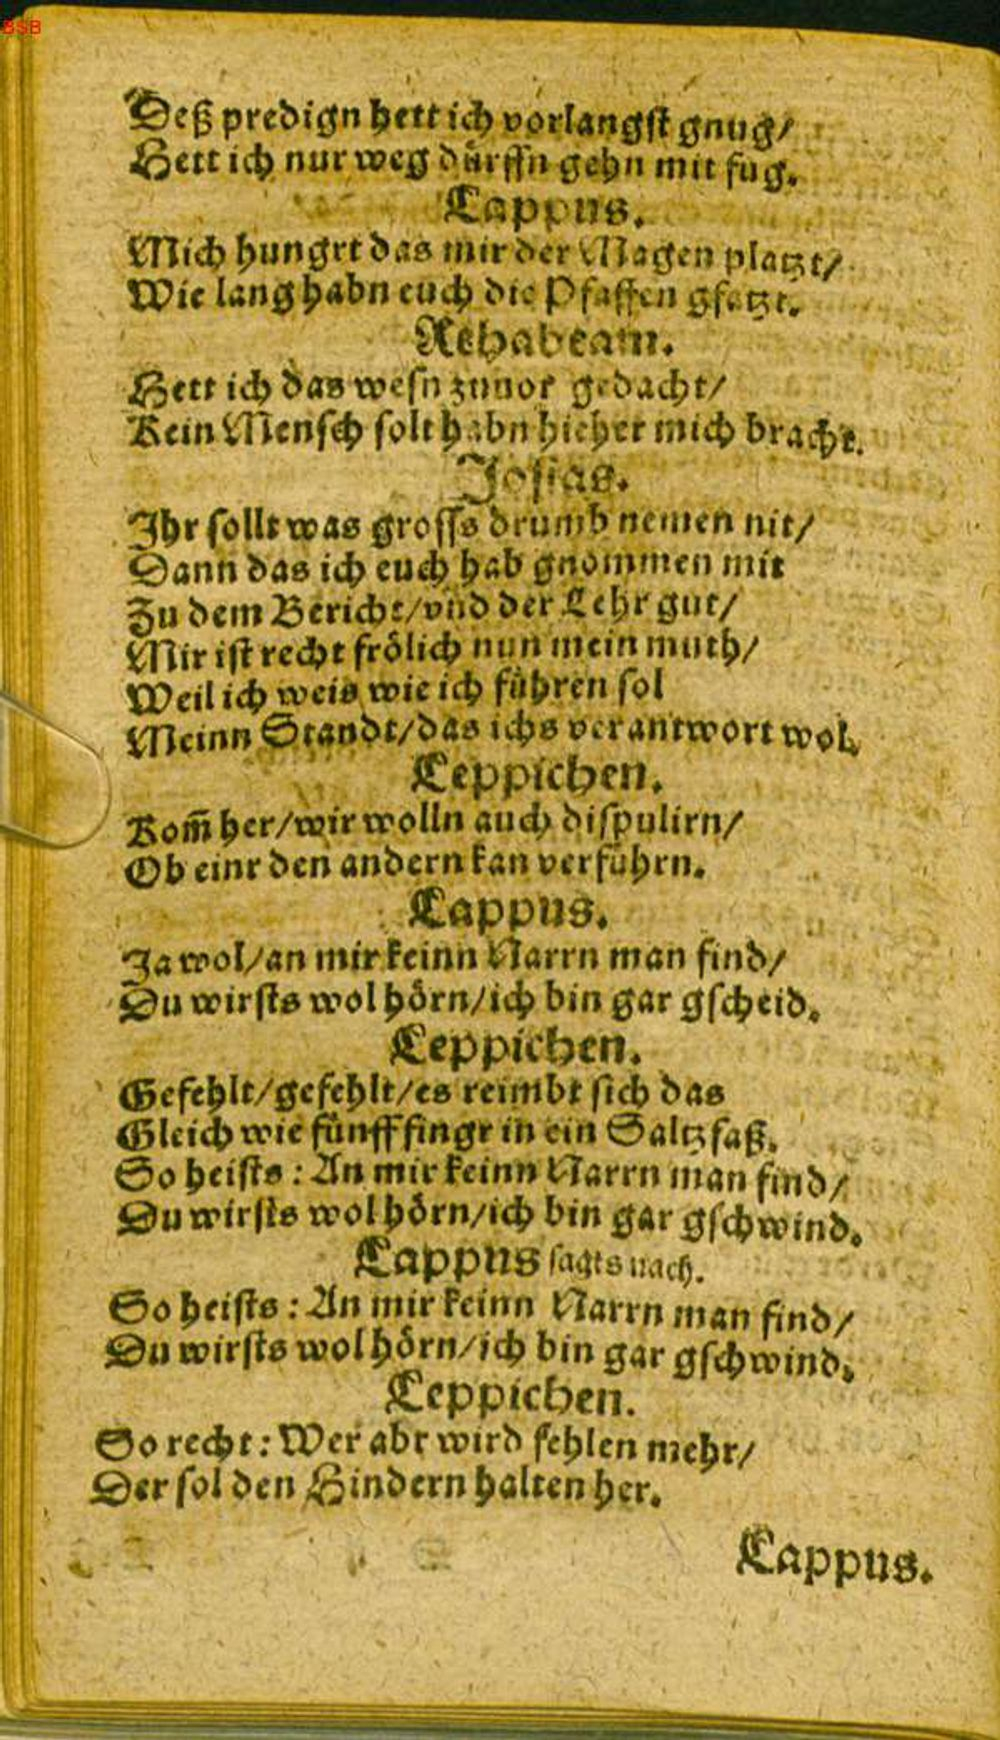 BSB
Deß predign hett ich vorlangst gnug/
Hett ich nur weg dürffn gehn mit fug.
Cappus.
Mich hungrt das mir der Magen platzt/
Wie lang habn euch die Pfaffen gfatzt.
Rehabeam.
Hett ich das wesn zuuor gedacht/
Kein Mensch solt habn hieher mich bracht.
Josias.
Ihr sollt was grosss drumb nemen nit/
Dann das ich euch hab gnommen mit
Zu dem Bericht/vnd der Lehr gut/
Mir ist recht frölich nun mein muth/
Weil ich weis wie ich führen sol
Meinn Standt/das ichs verantwort wol.
Leppichen.
Kom̃ her/wir wolln auch dispulirn/
Ob einr den andern kan verführn.
Cappus.
Ja wol/an mir keinn Narrn man find/
Du wirsts wol hörn/ich bin gar gscheid.
Leppichen.
Gefehlt/gefehlt/es reimbt sich das
Gleich wie fünff fingr in ein Saltzfaß.
So heists: An mir keinn Narrn man find/
Du wirsts wol hörn/ich bin gar gschwind.
Cappus sagts nach.
So heists: An mir keinn Narrn man find/
Du wirsts wol hörn/ich bin gar gschwind.
Leppichen.
So recht: Wer abr wird fehlen mehr/
Der sol den Hindern halten her.
Cappus.